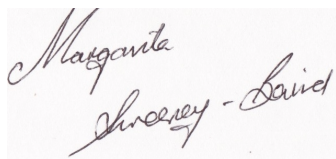 Margarita
Sweeney-Baird